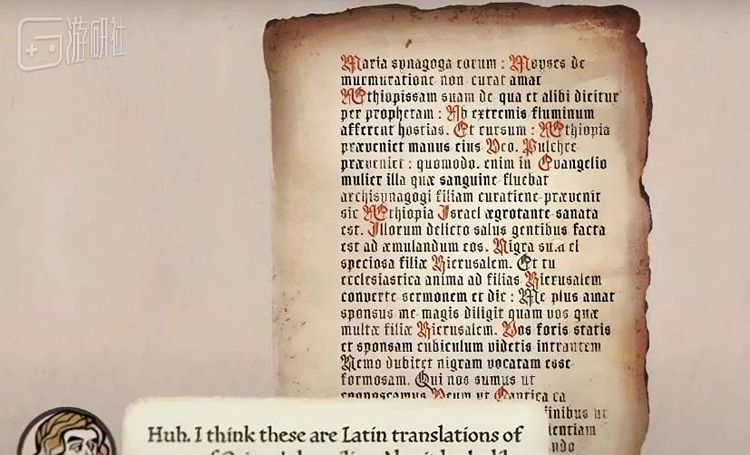 游研社
Maria synagoga eorum : Moyses de
murmuratione non curat amat
Æthiopissam suam de qua et alibi dicitur
per prophetam : Ab extremis fluminum
afferent hostias. Et rursum : Æthiopia
præveniet manus eius Deo. Pulchre
præveniet : quomodo. enim in Evangelio
mulier illa quæ sanguine fluebat
archisynagogi filiam curatione prævenit
sic Æthiopia Israel ægrotante sanata
est. Illorum delicto salus gentibus facta
est ad æmulandum eos. Nigra sum et
speciosa filiæ Hierusalem. Et tu
ecclesiastica anima ad filias Hierusalem
converte sermonem et dic : Me plus amat
sponsus me magis diligit quam vos quæ
multæ filiæ Hierusalem. Vos foris statis
et sponsam cubiculum videtis intrantem
Nemo dubitet nigram vocatam esse
formosam. Qui nos sumus ut
cognoscamus Deum ut Cantica ca
finibus ut
Huh. I think these are Latin translations of